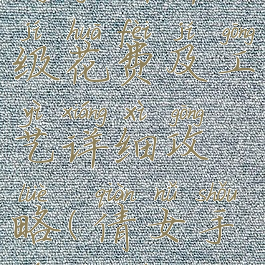 jí huā fèi jí gōng
级花费及工
yì xiáng xì gōng
艺详细攻
lüè qiàn nǚ shǒu
略(倩女手